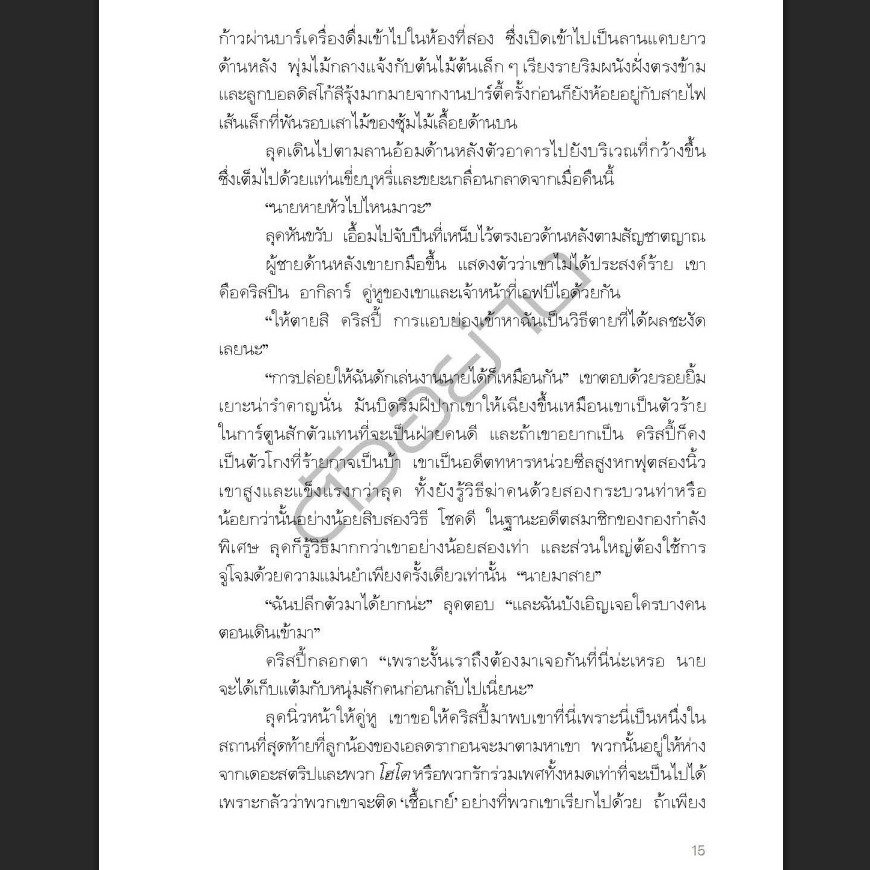 ก้าวผ่านบาร์เครื่องดื่มเข้าไปในห้องที่สอง ซึ่งเปิดเข้าไปเป็นลานแคบยาว
ด้านหลัง พุ่มไม้กลางแจ้งกับต้นไม้ต้นเล็ก ๆ เรียงรายริมผนังฝั่งตรงข้าม
และลูกบอลดิสโก้สีรุ้งมากมายจากงานปาร์ตี้ครั้งก่อนก็ยังห้อยอยู่กับสายไฟ
เส้นเล็กที่พันรอบเสาไม้ของซุ้มไม้เลื้อยด้านบน
ลุคเดินไปตามลานอ้อมด้านหลังตัวอาคารไปยังบริเวณที่กว้างขึ้น
ซึ่งเต็มไปด้วยแท่นเขี่ยบุหรี่และขยะเกลื่อนกลาดจากเมื่อคืนนี้
“นายหายหัวไปไหนมาวะ”
ลุคหันขวับ เอื้อมไปจับปืนที่เหน็บไว้ตรงเอวด้านหลังตามสัญชาตญาณ
ผู้ชายด้านหลังเขายกมือขึ้น แสดงตัวว่าเขาไม่ได้ประสงค์ร้าย เขา
คือคริสปิน อากิลาร์ คู่หูของเขาและเจ้าหน้าที่เอฟบีไอด้วยกัน
“ให้ตายสิ คริสปี้ การแอบย่องเข้าหาฉันเป็นวิธีตายที่ได้ผลชะงัด
เลยนะ”
“การปล่อยให้ฉันดักเล่นงานนายได้ก็เหมือนกัน” เขาตอบด้วยรอยยิ้ม
เยาะน่ารำคาญนั่น มันบิดริมฝีปากเขาให้เฉียงขึ้นเหมือนเขาเป็นตัวร้าย
ในการ์ตูนสักตัวแทนที่จะเป็นฝ่ายคนดี และถ้าเขาอยากเป็น คริสปี้ก็คง
เป็นตัวโกงที่ร้ายกาจเป็นบ้า เขาเป็นอดีตทหารหน่วยซีลสูงหกฟุตสองนิ้ว
เขาสูงและแข็งแรงกว่าลุค ทั้งยังรู้วิธีฆ่าคนด้วยสองกระบวนท่าหรือ
น้อยกว่านั้นอย่างน้อยสิบสองวิธี โชคดี ในฐานะอดีตสมาชิกของกองกำลัง
พิเศษ ลุคก็รู้วิธีมากกว่าเขาอย่างน้อยสองเท่า และส่วนใหญ่ต้องใช้การ
จู่โจมด้วยความแม่นยำเพียงครั้งเดียวเท่านั้น “นายมาสาย”
“ฉันปลีกตัวมาได้ยากน่ะ” ลุคตอบ “และฉันบังเอิญเจอใครบางคน
ตอนเดินเข้ามา”
คริสปี้กลอกตา “เพราะงั้นเราถึงต้องมาเจอกันที่นี่น่ะเหรอ นาย
จะได้เก็บแต้มกับหนุ่มสักคนก่อนกลับไปเนี่ยนะ”
ลุคนิ่วหน้าให้คู่หู เขาขอให้คริสปี้มาพบเขาที่นี่เพราะนี่เป็นหนึ่งใน
สถานที่สุดท้ายที่ลูกน้องของเอลดรากอนจะมาตามหาเขา พวกนั้นอยู่ให้ห่าง
จากเดอะสตริปและพวก โฮโต หรือพวกรักร่วมเพศทั้งหมดเท่าที่จะเป็นไปได้
เพราะกลัวว่าพวกเขาจะติด ‘เชื้อเกย์’ อย่างที่พวกเขาเรียกไปด้วย ถ้าเพียง
15
ตัวอย่าง